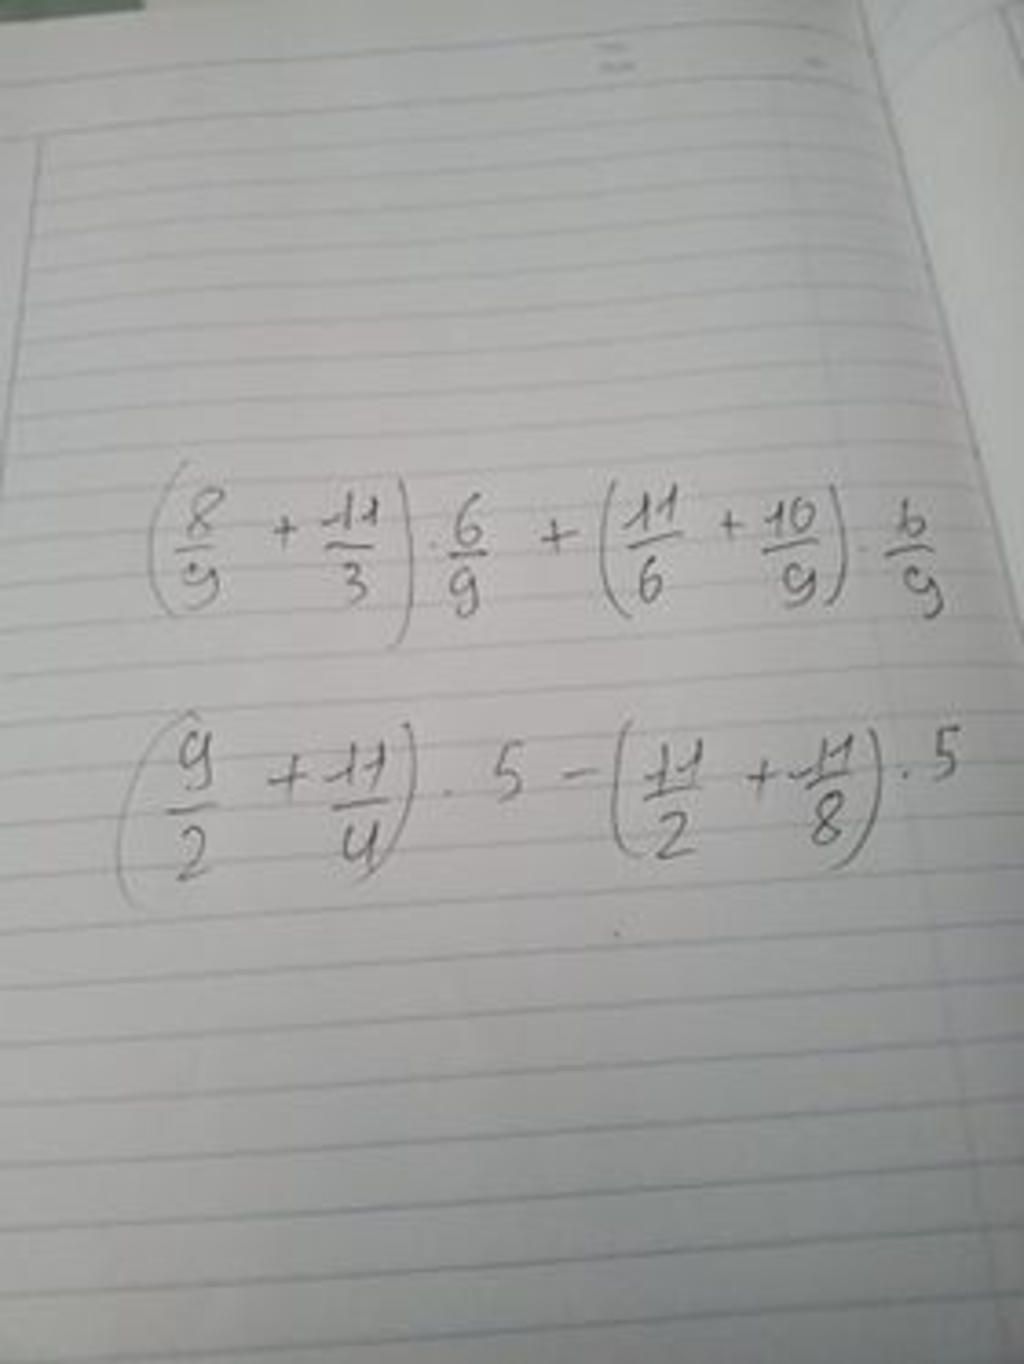 (8/9 + -11/3) . 6/9 + (11/6 + 10/9) . 6/9
(9/2 + 11/4) . 5 - (11/2 + -11/8) . 5